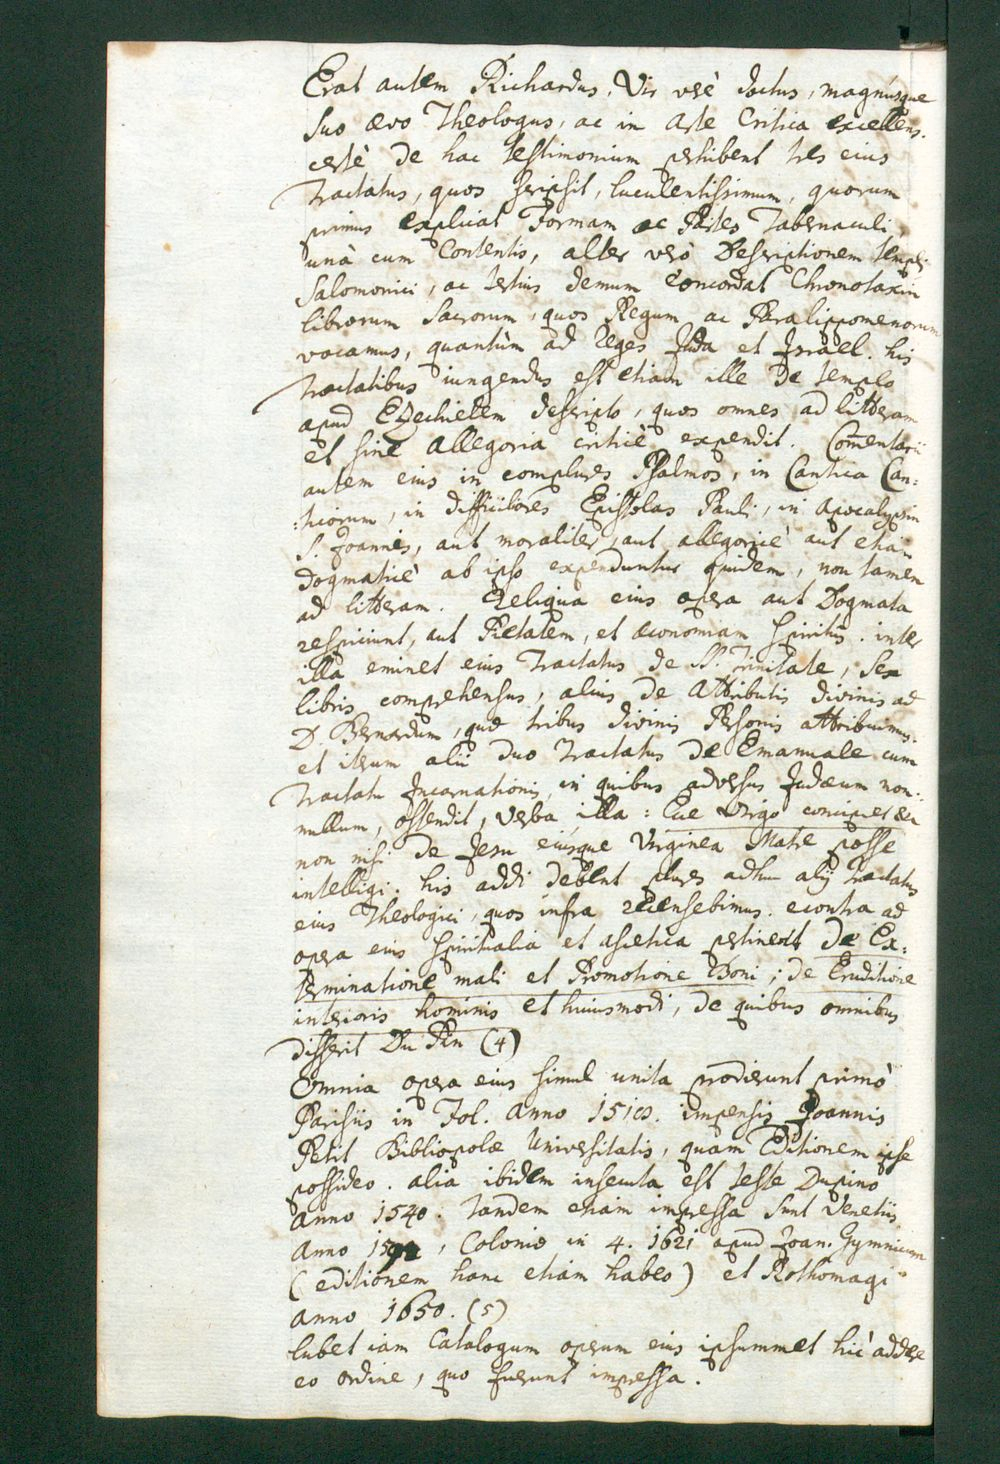 Erat autem Richardus, Vir verè doctus, magnusque
suo aevo Theologus, ac in Arte Critica excellens.
certè de hac testimonium perhibent tres eius
Tractatus, quos scripsit, luculentissimum, quorum
primus explicat Formam ac Partes Tabernaculi,
unà cum Contentis, alter verò Descriptionem templi
Salomonici, ac tertius demum concordat Chronotaxin
librorum Sacrorum, quos Regum ac Paralippomenorum
vocamus, quantùm ad Reges Juda et Israel. his
Tractatibus iungendus est etiam ille de templo
apud Ezechielem descripto, quos omnes ad litteram
et sine allegoria criticè expendit. Com̄entarii
autem eius in complures Psalmos, in Cantica Can:
:ticorum, in difficiliores Epistolas Pauli, in Apocalypsin
S. Joannis, aut moraliter, aut allegoricè aut etiam
dogmaticè ab ipso expenduntur quidem, non tamen
ad litteram. Reliqua eius opera aut Dogmata
respiciunt, aut Pietatem, et oeconomiam Spiritûs. inter
illa eminet eius Tractatus de SS. Trinitate, sex
libris comprehensus, alius de Attributis divinis ad
D. Bernardum, quae tribus divinis Personis attribuimus.
et iterum alii duo Tractatus de Emanuele cum
Tractatu Incarnationis, in quibus adversus Judaeum non:
nullum, ostendit, verba illa: Ecce Virgo concipiet &c
non nisi de Jesu eiusque Virginea Matre posse
intelligi. his addi debent plures adhuc alij Tractatus
eius Theologici, quos infra recensebimus. econtra ad
opera eius spiritualia et ascetica pertinent De Ex:
terminatione mali et Promotione Boni; de Eruditione
interioris hominis et huiusmodi, de quibus omnibus
disserit Du Pin (4)
Omnia opera eius simul unita prodierunt primò
Parisiis in Fol. Anno impensis Joannis
Petit Bibliopolae Universitatis, quam Editionem ipse
possideo. alia ibidem insecuta est teste Dupino
anno 1540. tandem etiam impressa sunt Venetiis
Anno, Coloniae in 4. 1621 apud Joan. Gymnicum
(editionem hanc etiam habeo) et Rothomagi
anno 1650. (5)
lubet iam Catalogum operum eius ipsummet hic addere
eo ordine, quo fuerunt impressa.